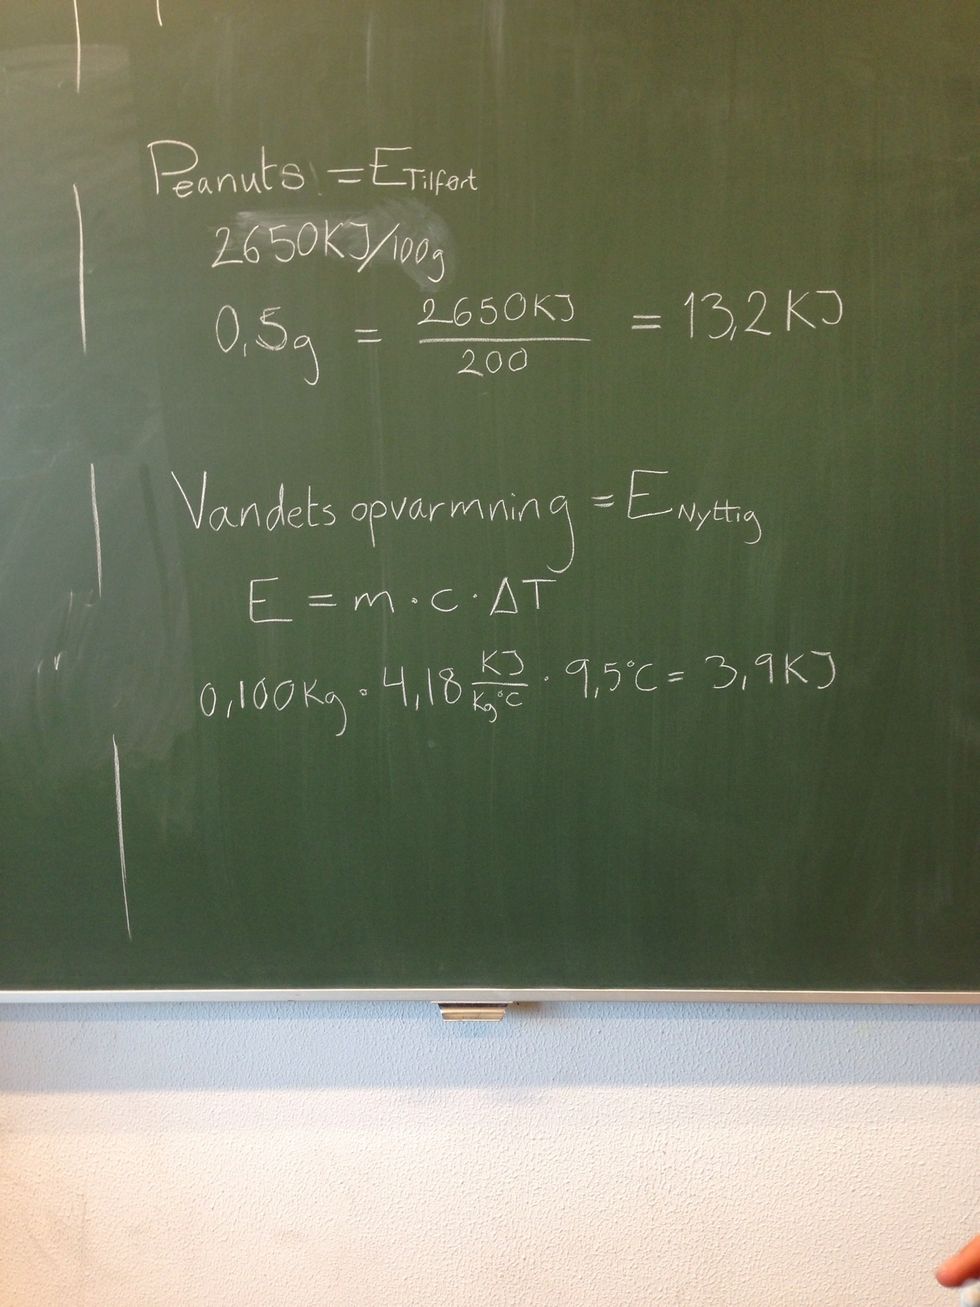 Peanuts = E Tilført
2650KJ/100g
0,5g = 2650KJ/200 = 13,2KJ
Vandets opvarmning = E Nyttig
E = m · c · ΔT
0,100Kg · 4,18 KJ/Kg°C · 9,5°C = 3,9KJ